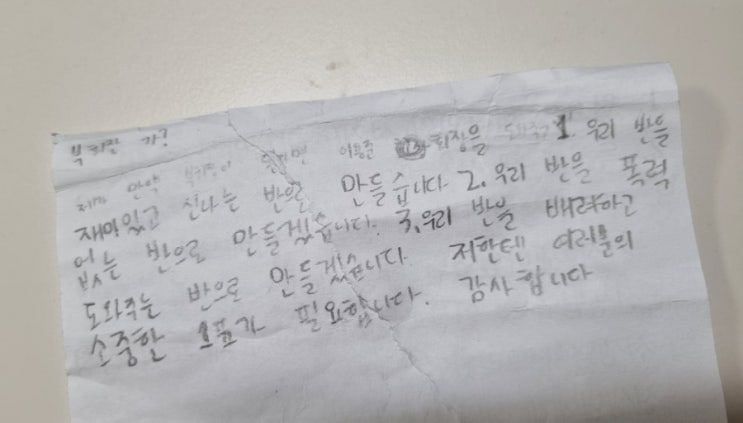 부회장 가?
제가 만약 부회장이 된다면 이용준 회장을 도와주고 1. 우리 반을
재미있고 신나는 반으로 만들습니다 2. 우리 반을 폭력
없는 반으로 만들겠습니다. 3. 우리 반을 배려하고
도와주는 반으로 만들겠습니다. 저한텐 여러분의
소중한 1표가 필요합니다. 감사합니다